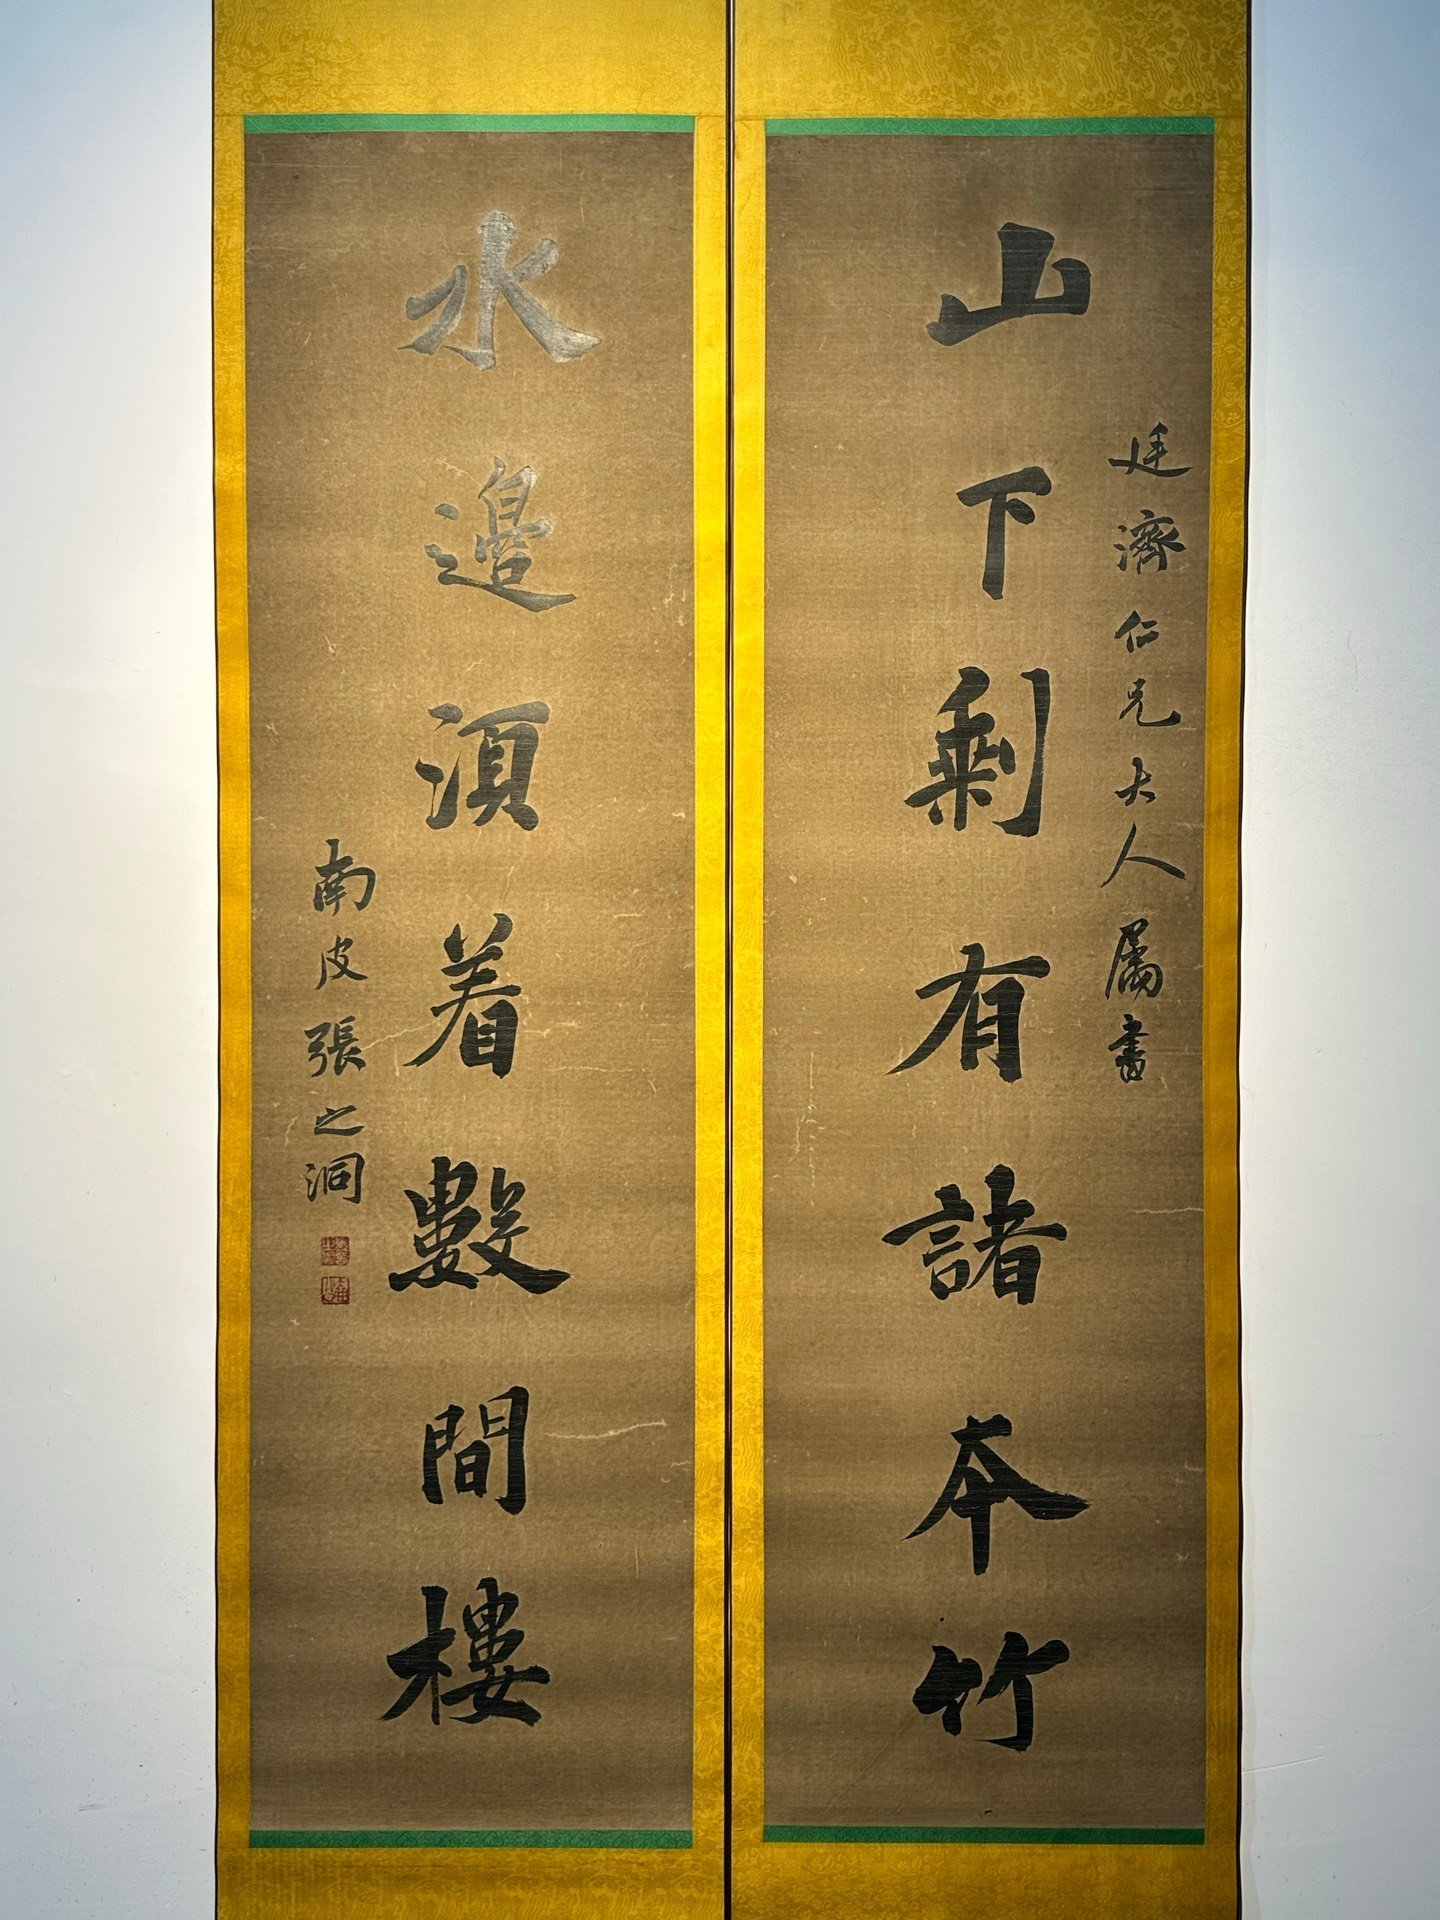 廷濟仁兄大人屬書
山下剩有諸本竹
水邊須着數間樓
南皮張之洞